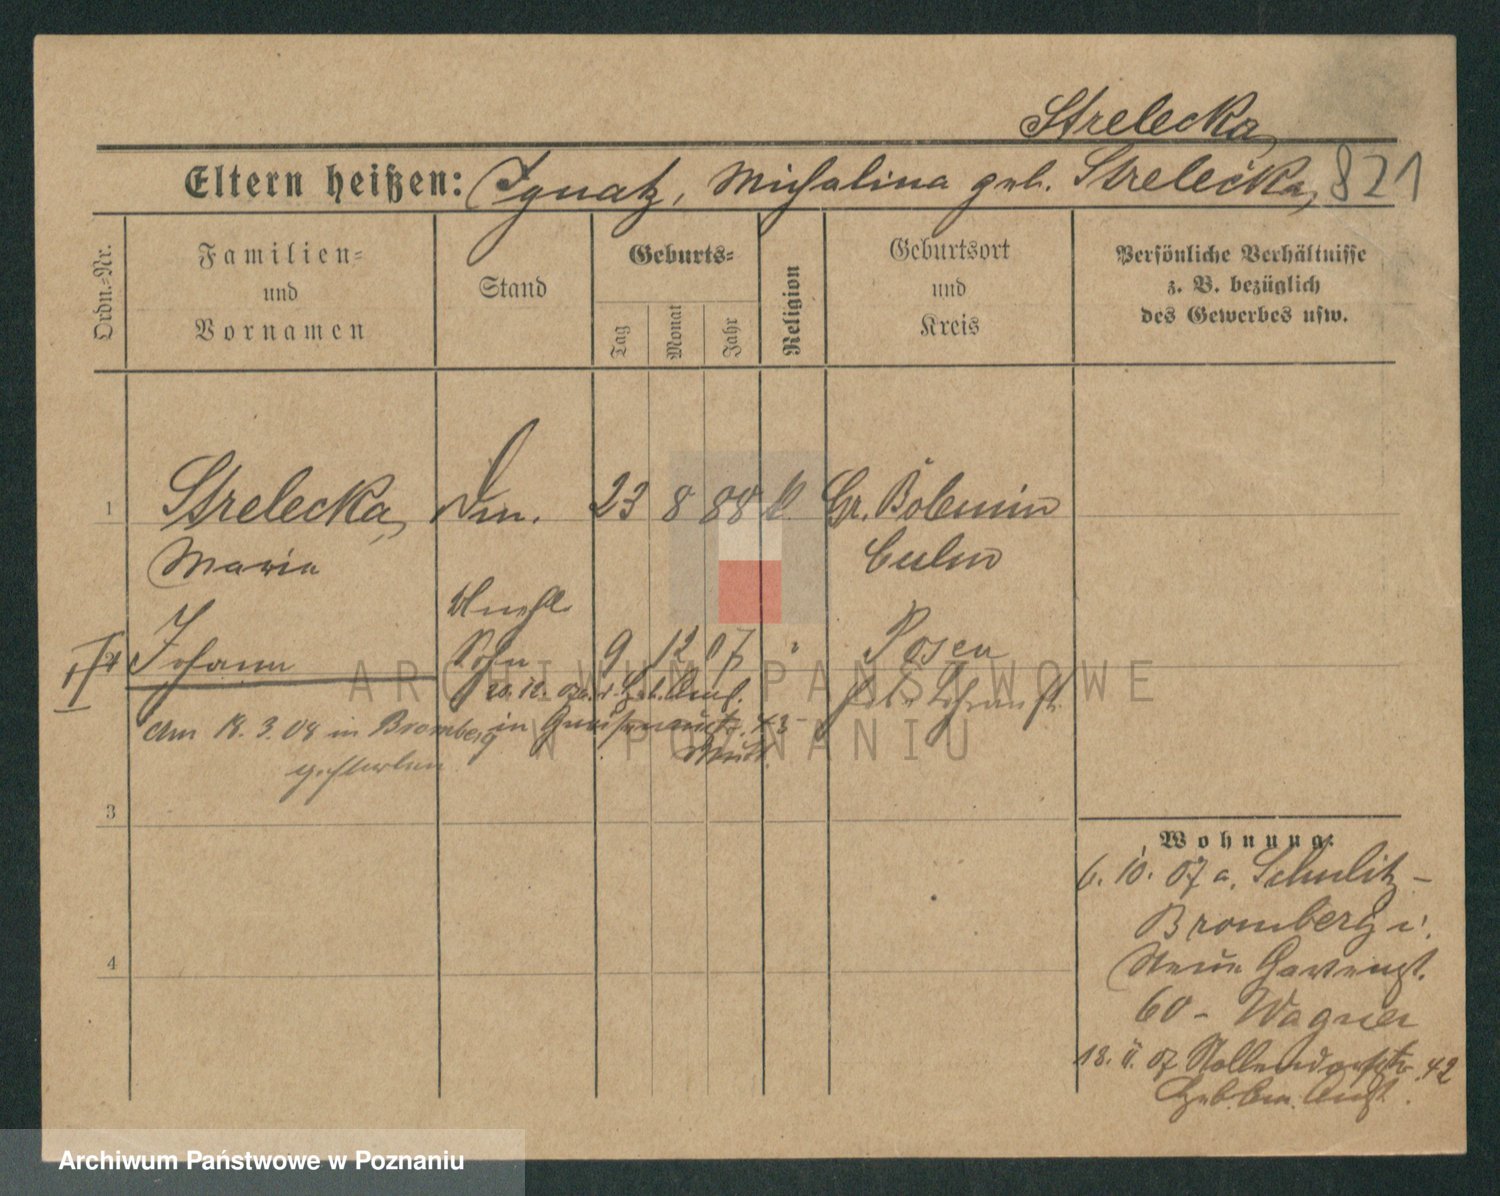 Strelecka
Eltern heißen: Ignatz, Michalina geb. Strelecka, 821
Ordn.-Nr.
Familien-
und
Vornamen
Stand
Geburts-
Tag
Monat
Jahr
Religion
Geburtsort
und
Kreis
Persönliche Verhältnisse
z. B. bezüglich
des Gewerbes usw.
1 Strelecka, 23 8 88 k. Gr. Bolumin
Maria Culm
unehl.
2 Johann Sohn 9 12 07 " Posen
20. 12. 07
Am 18. 3. 08 in Bromberg
gestorben
in Gneisenaustr. 43
3
4
Wohnung:
6. 10. 07 a. Schulitz -
Bromberg i.
Neue Gartenst.
60 - Wagner
18. 11. 07 Nollendorfstr. 42
ARCHIWUM PAŃSTWOWE
W POZNANIU
Archiwum Państwowe w Poznaniu